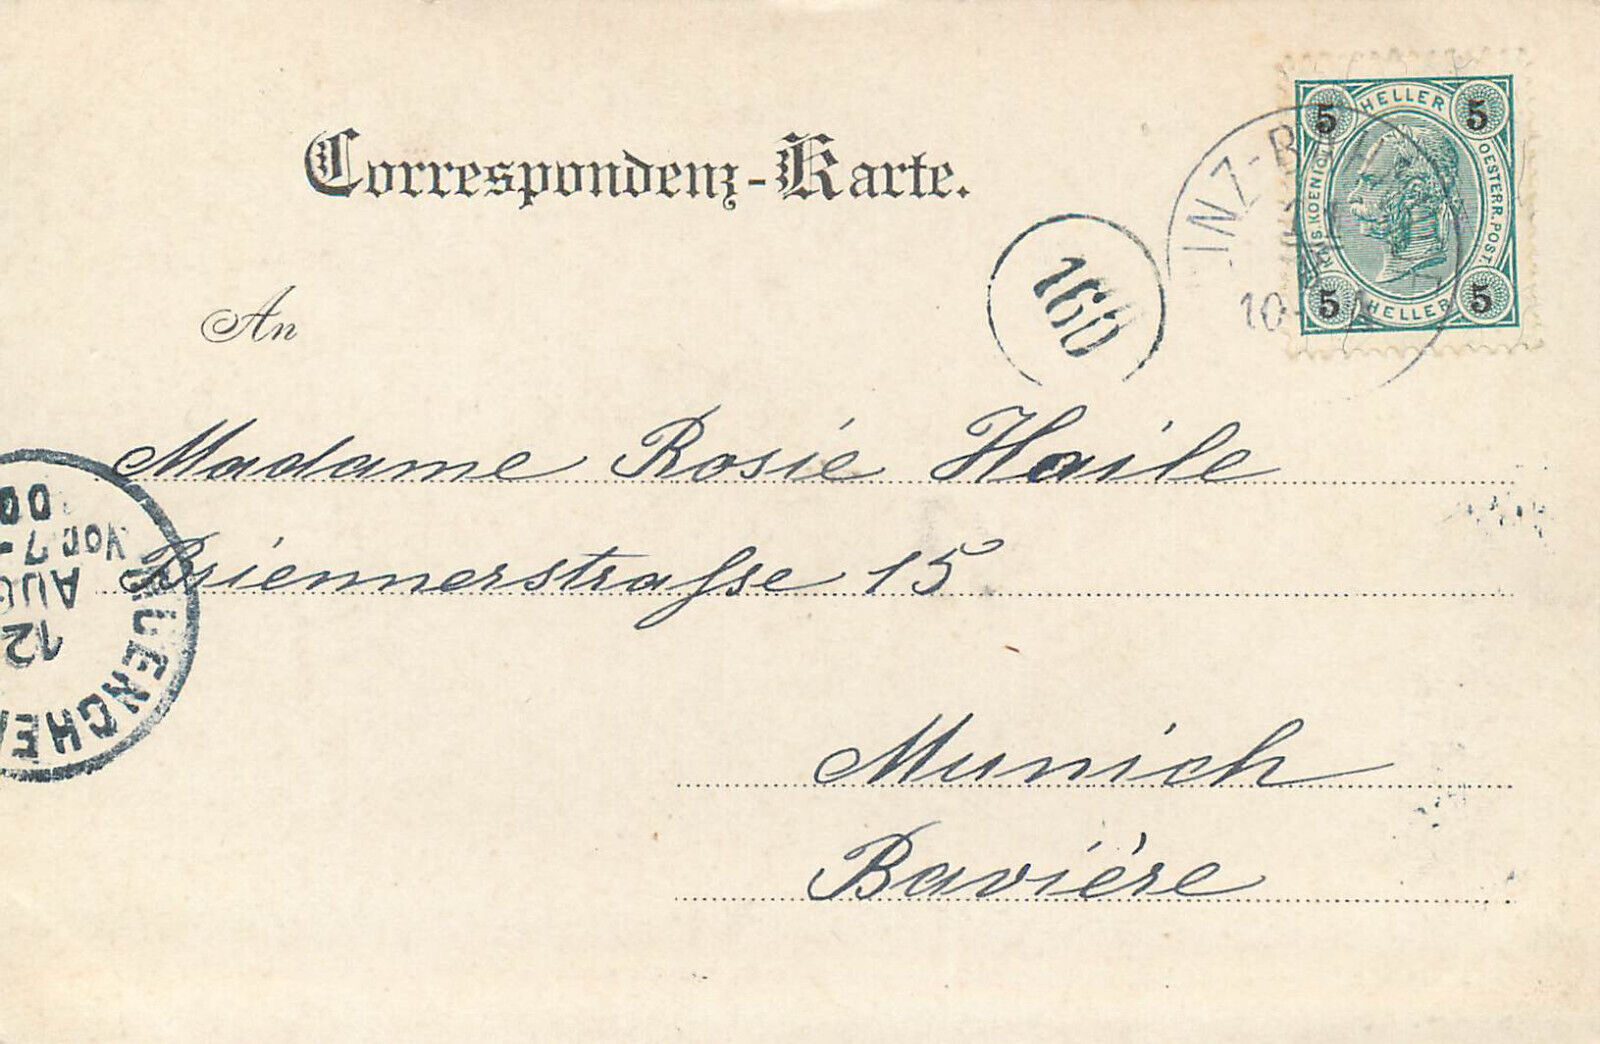 Correspondenz-Karte.
5 HELLER 5
KAIS. KOENIGL. OESTERR. POST.
5 HELLER 5
INZ-B
10
160
An
Madame Rosie Haile
Briennerstraſse 15
Munich
Bavière
MUENCHEN
12
AUG
Vor 7-
00